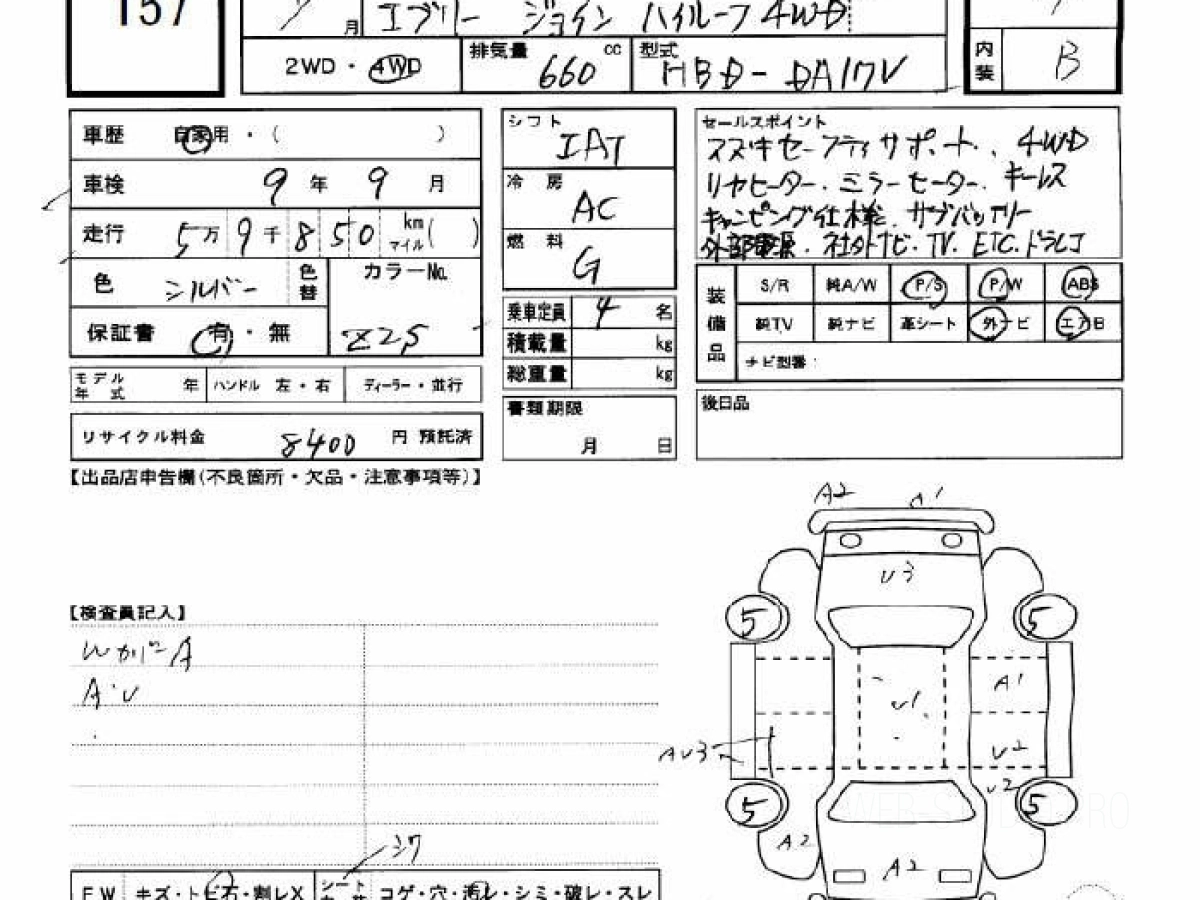 157
月 エブリー ジョイン ハイルーフ 4WD
2WD・4WD 排気量 660 cc 型式 HBD-DA17V
内装 B
車歴 自家用・( )
車検 9年 9月
走行 5万9千850 km マイル( )
色 シルバー 色替 カラーNo. Z2S
保証書 有・無
モデル年式 年 ハンドル 左・右 ディーラー・並行
リサイクル料金 8400 円 預託済
シフト IAT
冷房 AC
燃料 G
乗車定員 4 名
積載量 kg
総重量 kg
書類期限
月 日
セールスポイント
スズキセーフティサポート、4WD
リヤヒーター.ミラーヒーター.キーレス
キャンピング仕様 サブバッテリー
外部電源.社外ナビ.TV.ETC.ドラレコ
装備品
S/R 純A/W P/S P/W ABS
純TV 純ナビ 革シート 外ナビ エアB
ナビ型番:
後日品
【出品店申告欄(不良箇所・欠品・注意事項等)】
【検査員記入】
WカバーA
A・U
A2 A1
U3
5 5
A1
U1
AU3 U2
U2
5 5
A2
A2
シワ
FW キズ・トビ石・割レX シート コゲ・穴・汚レ・シミ・破レ・スレ